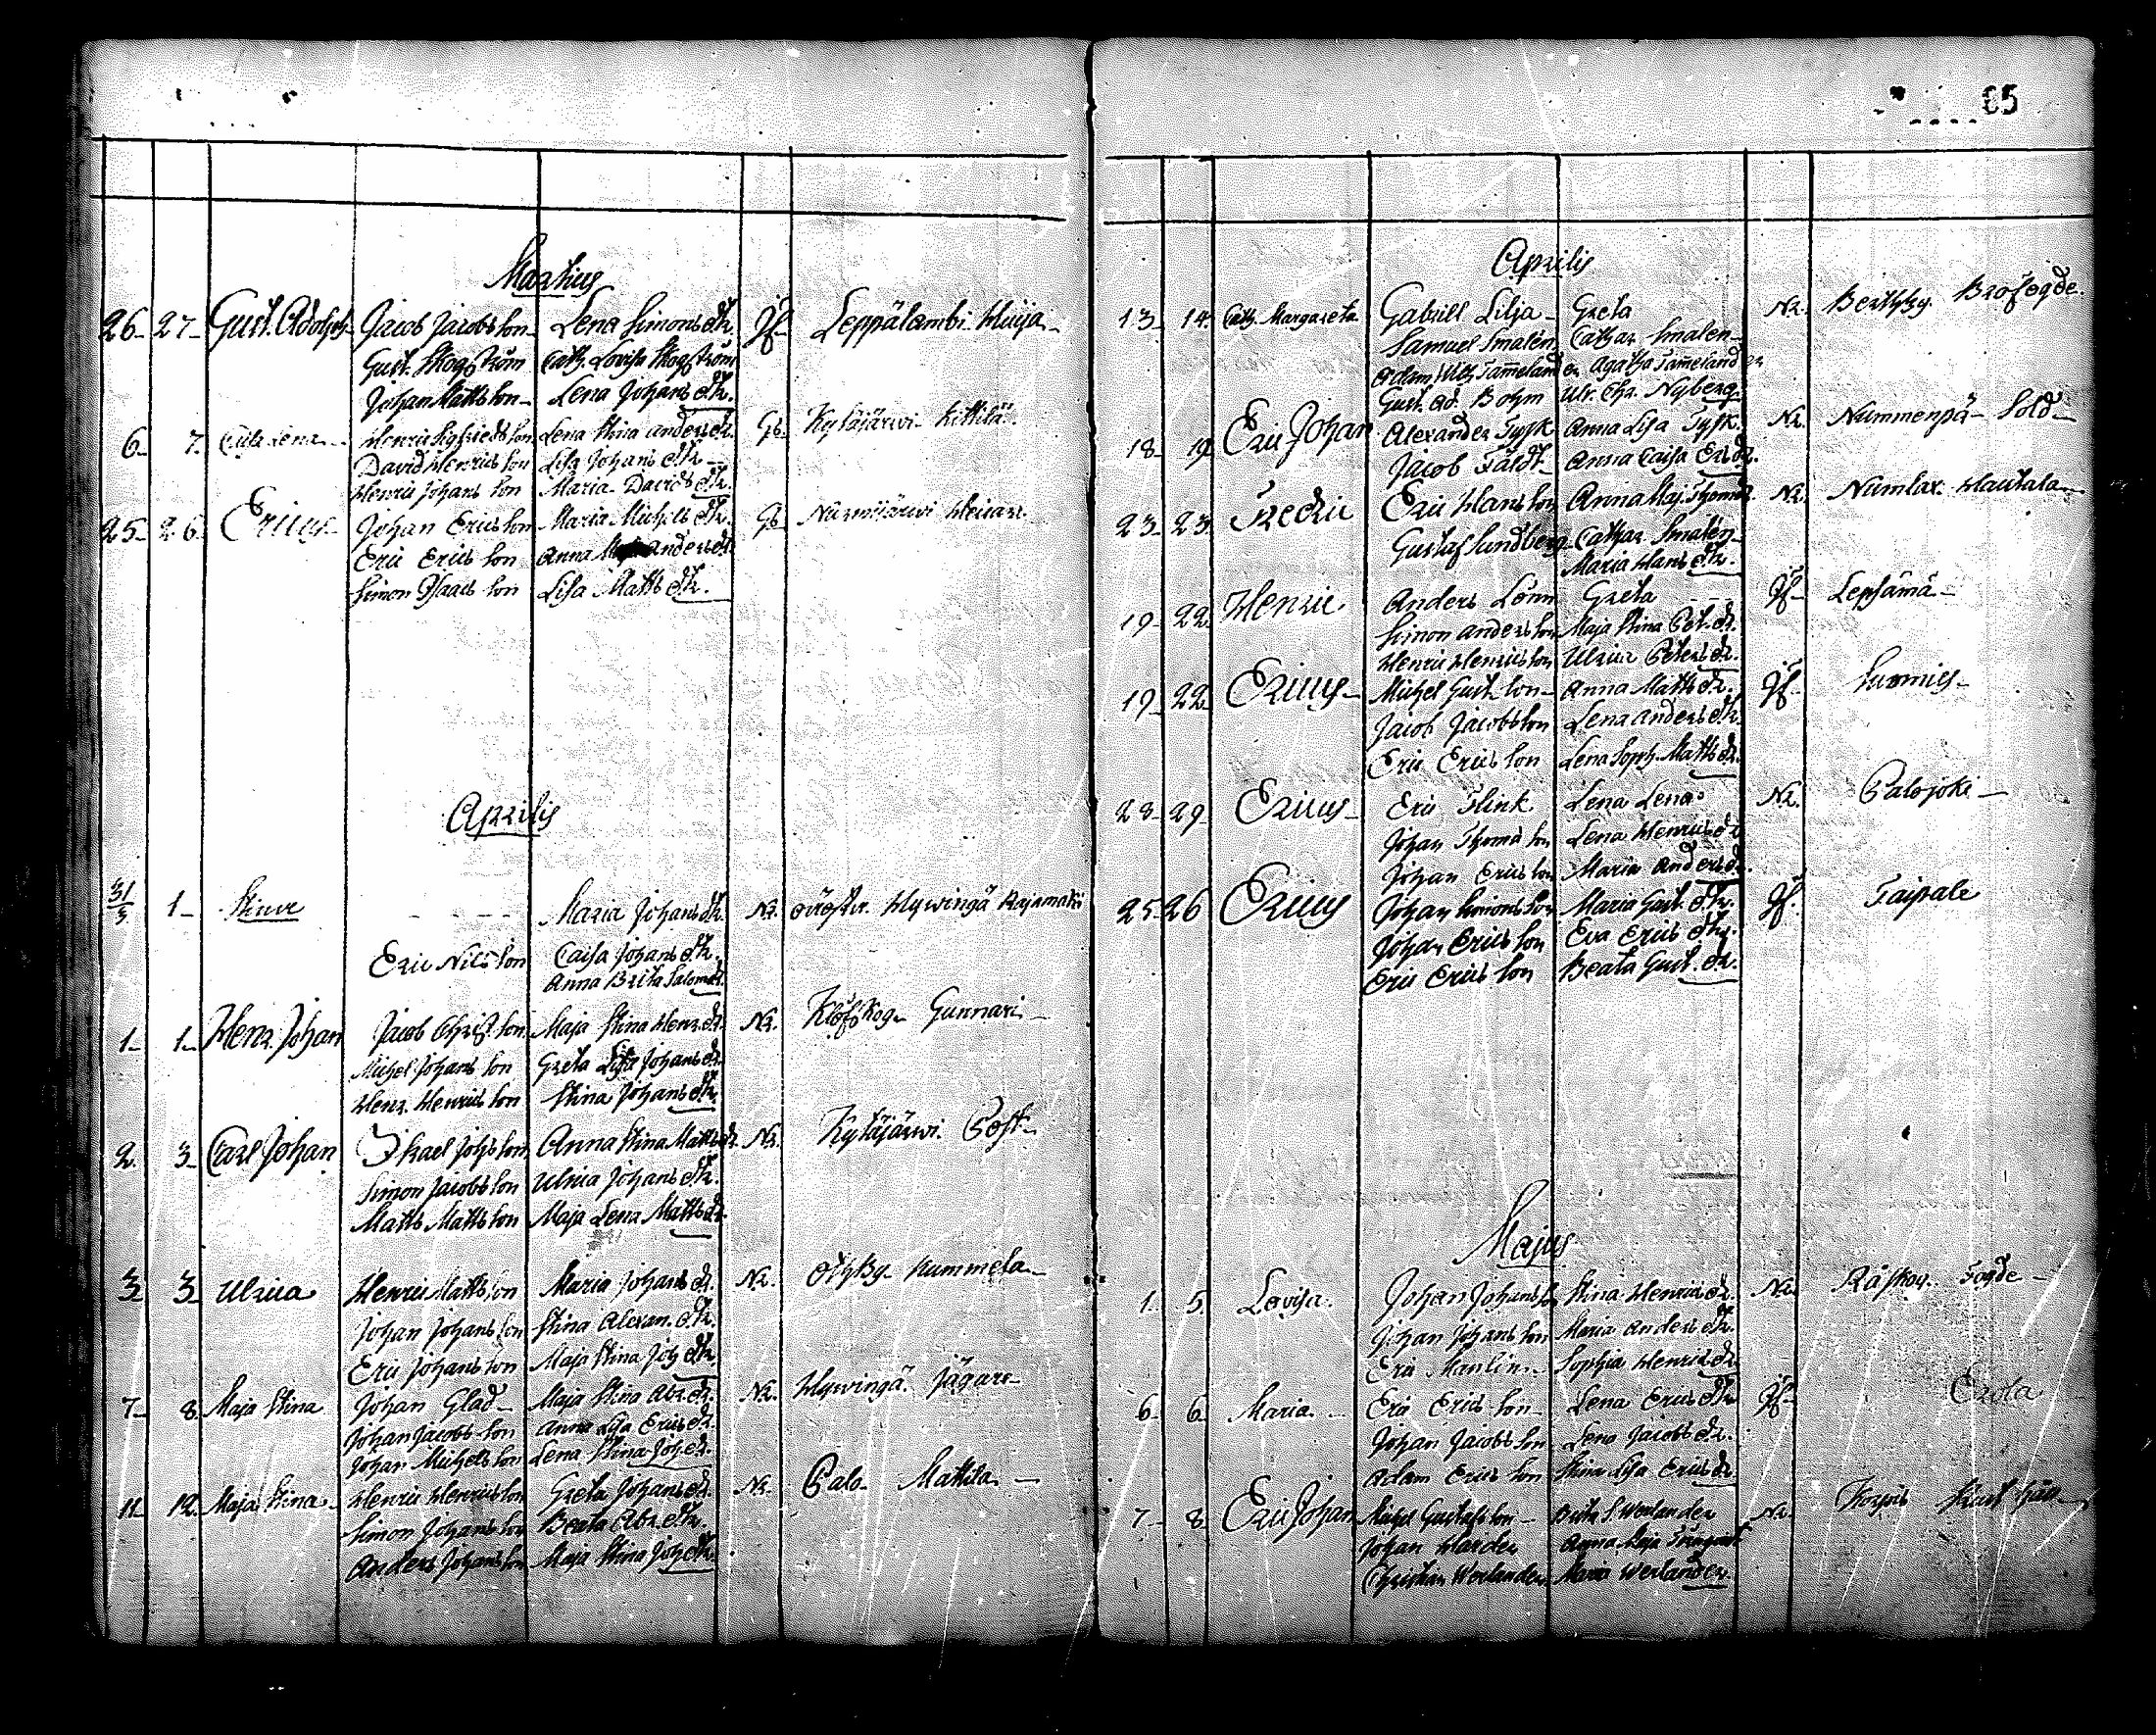 85
Martius
26 27 Gust. Adolph Jacob Jacobsson Lena Simonsdtr. Jf. Leppälambi
Gust. Skogström Cath. Lovisa Skogström
Johan Mattsson Lena Johansdtr.
6 7 Lena Henric Sigfriedsson Lena Stina Andersdr. Kytäjärwi Kittilä
David Henricsson Lisa Johansdtr.
Henric Johansson Maria Davidsdtr.
25 26 Ericus Johan Ericsson Maria Michelsdtr. Nurmijärwi
Eric Ericsson Anna Andersdr.
Simon Isaacsson Lisa Mattsdtr.
Aprilis
31/3 1 Maria Johansdtr. Nr. Hywingä Rajamäki
Eric Nilsson Caisa Johansdtr.
Anna Brita Salomdr.
1 1 Henr. Johan Jacob Christsson Maja Stina Henr.dr. Nr. Klöfskog Gunnari
Michel Johansson Greta Lisa Johansdr.
Henr. Henricsson Stina Johansdtr.
2 3 Carl Johan Johsson Anna Stina Mattsdr. Nr. Kytäjärwi Post
Simon Jacobsson Ulrica Johansdtr.
Matts Mattsson Maja Lena Mattsdr.
3 3 Ulrica Henric Mattsson Maria Johansdr. Nr. Nummela
Johan Johansson Stina Alexan.dtr.
Eric Johansson Maja Stina Johdtr.
7 8 Maja Stina Johan Glad Maja Stina Abr.dr. Nr. Hywingä Jägare
Johan Jacobsson Anna Lisa Ericsdr.
Johan Michelsson Lena Stina Joh.dr.
11 12 Maja Stina Henric Henricsson Greta Johansdr. Nr. Palo Mattila
Simon Johansson Beata Abr.dtr.
Anders Johansson Maja Stina Johdtr.
Aprilis
13 14 Cath. Margareta Gabriel Lilja Greta Nr. Brofogde
Samuel Smalén Cathar Smalén
Adam Wilh Tammelander Agatha Tammelander
Gust. Ad. Bohm Ulr. Chr. Nyberg
18 19 Eric Johan Alexander Tysk Anna Lisa Tysk Nr. Nummenpä Sold
Jacob Fäldt Anna Caisa Ersdr.
23 23 Fredric Eric Hansson Anna Maj. Thomsdr. Nr. Numlax Hautala
Gustaf Sundberg Cathar Smalén
Maria Hansdtr.
19 22 Henric Anders Lönn Greta Jf. Lepsämä
Simon Andersson Maja Stina Pet.dr.
Henric Henricsson Ulrica Petersdr.
19 22 Ericus Michel Gustsson Anna Mattsdtr. Jf.
Jacob Jacobsson Lena Andersdtr.
Eric Ericsson Lena Soph. Mattsdr.
28 29 Ericus Eric Flink Lena Lena Nr. Palojoki
Johan Thomasson Lena Henricsdtr
Johan Ericsson Maria Andersdr.
25 26 Ericus Johan Simonsson Maria Gust.dtr. Jf. Taipale
Johan Ericsson Eva Ericsdtr.
Eric Ericsson Beata Gust.dr.
Majus
1 5 Lovisa Johan Johansson Stina Henricsdr. Nr. Råskog Fogde
Johan Johansson Maria Andersdtr.
Eric Manlin Sophia Henricsdr.
6 6 Maria Eric Ericsson Lena Ericsdtr. Jf.
Johan Jacobsson Lena Jacobsdr.
Adam Ericsson Stina Lisa Ericsdr.
7 8 Eric Johan Michel Gustafsson Brita S. Werlander Nr.
Johan Harder Anna Maja
Christian Werlander Maria Werlander